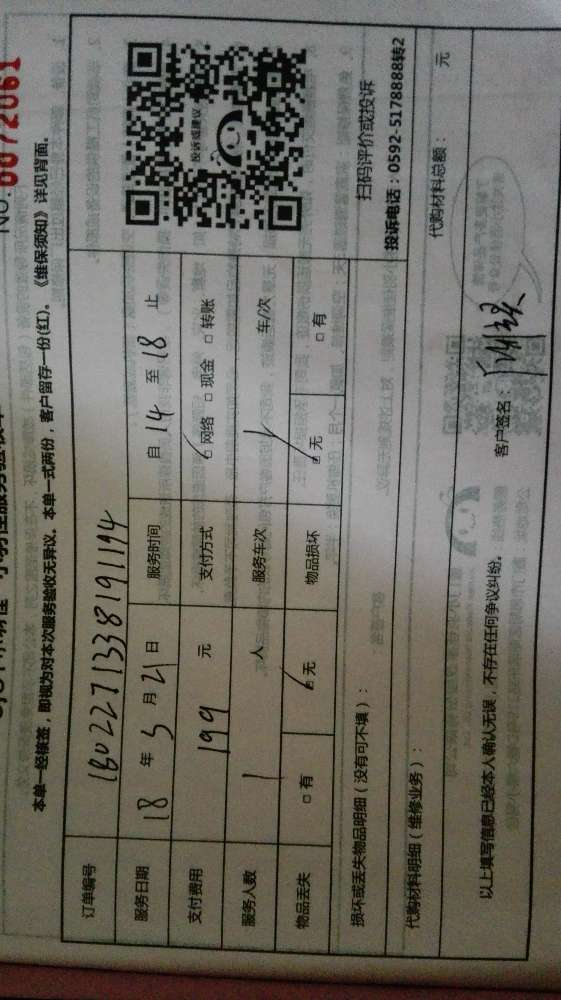 NO.0072061
本单一经核签，即视为对本次服务验收无异议。本单一式两份，客户留存一份(红)。《维保须知》详见背面。
订单编号 1802271338191194
服务日期 18 年 3 月 21 日 服务时间 自 14 至 18 止
支付费用 199 元 支付方式 网络 □ 现金 □ 转账
服务人数 1 人 服务车次 1 车/次
物品丢失 □ 有 无 物品损坏 无 □ 有
投诉或建议
扫码评价或投诉
投诉电话：0592-5178888转2
损坏或丢失物品明细（没有可不填）：
代购材料明细（维修业务）： 代购材料总额： 元
以上填写信息已经本人确认无误，不存在任何争议纠纷。 客户签名：